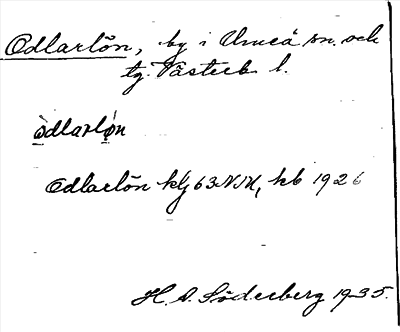 Odlarlön, by i Umeå sn. och
tg. Västerb l.
òdlarløn
Odlarlön klg 63 NM, kb 1926
H. A. Söderberg 1935.